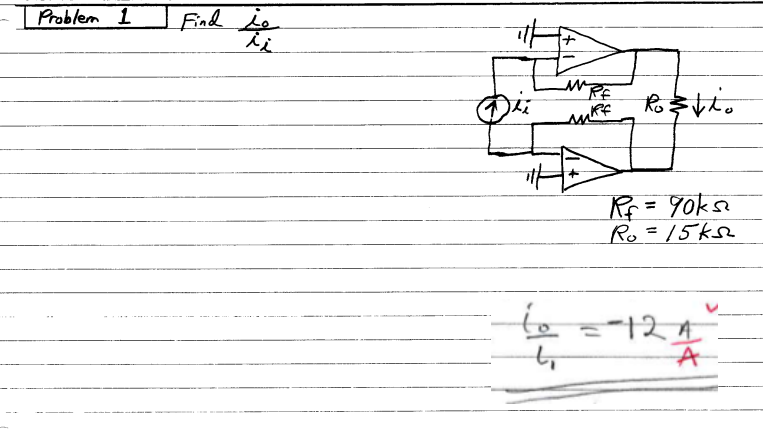 Problem 1 Find i₀/iᵢ
+
−
Rf
iᵢ
Rf
R₀ ↓ i₀
−
+
Rf = 90kΩ
R₀ = 15kΩ
i₀/i₁ = -12 A/A